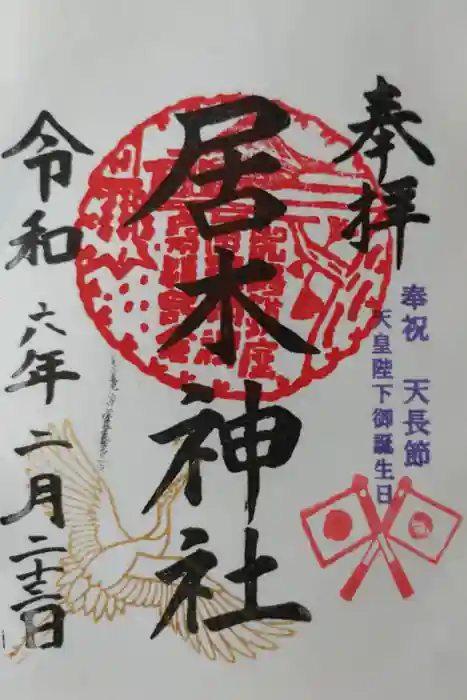 奉拝
奉祝 天長節
天皇陛下御誕生日
居木神社
令和六年二月二十三日